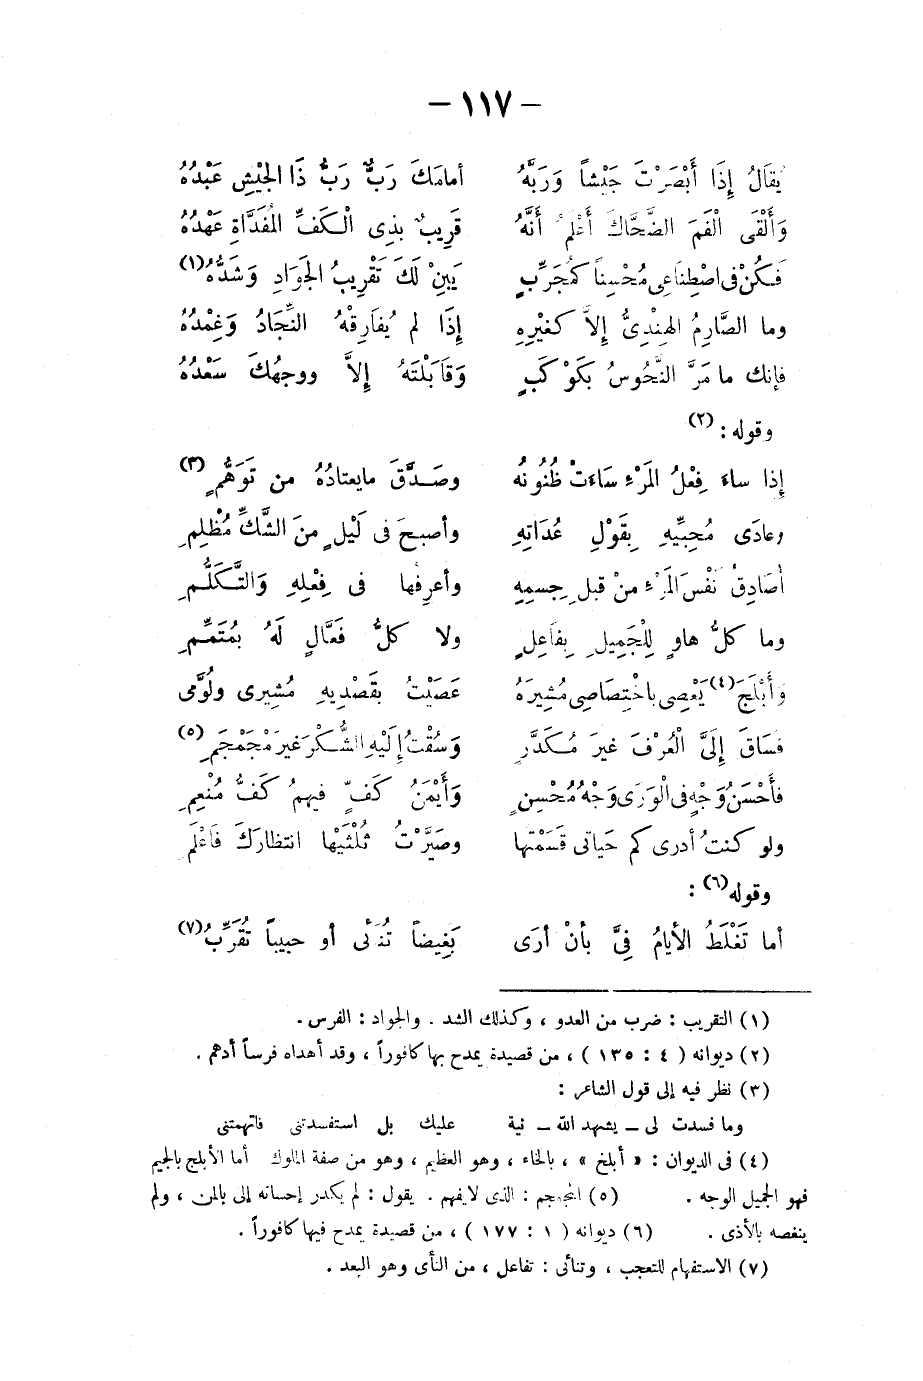 — ١١٧ —
يُقَالُ إِذَا أَبْصَرْتَ جَيْشاً وَرَبَّهُ أمامَكَ رَبٌّ رَبُّ ذَا الجَيْشِ عَبْدُهُ
وَأَلْقَى الْفَمَ الضَّحَّاكَ أَعْلَمُ أَنَّهُ قَرِيبٌ بِذِى الْكَفِّ المُفَدَّاةِ عَهْدُهُ
فَكُنْ فى اصْطِنَاعِى مُحْسِناً كَمُجَرِّبٍ يَبِنْ لَكَ تَقْرِيبُ الجَوَادِ وَشَدُّهُ(١)
وما الصَّارِمُ الهِنْدِىُّ إلاَّ كَغَيْرِهِ إذَا لم يُفَارِقْهُ النِّجَادُ وَغِمْدُهُ
فإنك ما مَرَّ النُّحُوسُ بَكَوْكَبٍ وَقَابَلْتَهُ إلاَّ ووجهُكَ سَعْدُهُ
وقوله : (٢)
إذا ساءَ فِعْلُ المَرْءِ سَاءَتْ ظُنُونُهُ وصَدَّقَ مايعتادُهُ من تَوَهُّمٍ(٣)
وعادَى مُحِبِّيهِ بِقَوْلِ عُدَاتِهِ وأصبحَ فى لَيْلٍ منَ الشَّكِّ مُظْلِمِ
أُصَادِقُ نَفْسَ المَرْءِ منْ قبلِ جِسمِهِ وأعرِفُها فى فِعْلِهِ وَالتَّكَلُّمِ
وما كلُّ هاوٍ لِلْجَمِيلِ بِفَاعِلٍ ولا كلُّ فَعَّالٍ لَهُ بِمُتَمِّمِ
وَأَبْلَجَ(٤) يَعْصِى باخْتِصَاصِى مُشِيرَهُ عَصَيْتُ بقَصْدِيهِ مُشِيرِى ولُوَّمى
فسَاقَ إلَىَّ الْعُرْفَ غيرَ مُكَدَّرٍ وَسُقْتُ إلَيْهِ الشُّكْرَ غيرَ مُجَمْجَمِ(٥)
فأَحْسَنُ وَجْهٍ فى الْوَرَى وَجْهُ مُحْسِنٍ وَأَيْمَنُ كَفٍّ فيهمُ كَفُّ مُنْعِمِ
ولو كنتُ أدرى كم حَيَاتى قَسَمْتُها وصَيَّرْتُ ثُلْثَيْها انتظارَكَ فَاعْلَمِ
وقوله(٦) :
أما تَغْلَطُ الأيامُ فِىَّ بأنْ أرَى بَغِيضاً تُنَائى أو حبيباً تُقَرِّبُ(٧)
(١) التقريب : ضرب من العدو ، وكذلك الشد . والجواد : الفرس .
(٢) ديوانه ( ٤ : ١٣٥ ) ، من قصيدة يمدح بها كافوراً ، وقد أهداه فرساً أدهم .
(٣) نظر فيه إلى قول الشاعر :
وما فسدت لى ــ يشهد الله ــ نية عليك بل استفسدتنى فاتهمتنى
(٤) فى الديوان : « أبلخ » ، بالخاء ، وهو العظيم ، وهو من صفة الملوك أما الأبلج بالجيم
فهو الجميل الوجه . (٥) المجمجم : الذى لا يفهم . يقول : لم يكدر إحسانه إلى بالمن ، ولم
ينغصه بالأذى . (٦) ديوانه ( ١ : ١٧٧ ) ، من قصيدة يمدح فيها كافوراً .
(٧) الاستفهام للتعجب ، وتنائى : تفاعل ، من النأى وهو البعد .